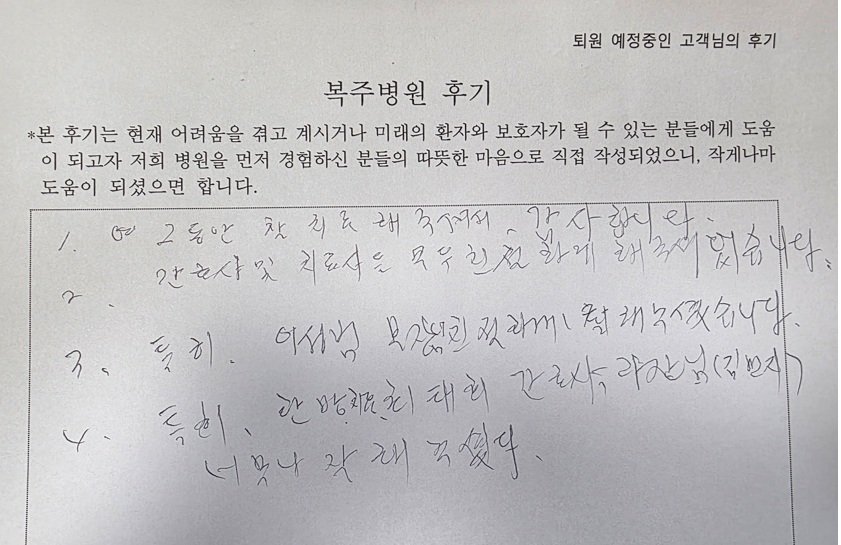 퇴원 예정중인 고객님의 후기
복주병원 후기
*본 후기는 현재 어려움을 겪고 계시거나 미래의 환자와 보호자가 될 수 있는 분들에게 도움
이 되고자 저희 병원을 먼저 경험하신 분들의 따뜻한 마음으로 직접 작성되었으니, 작게나마
도움이 되셨으면 합니다.
1. 그동안 참 치료 해 주셔서, 감사합니다.
2. 간호사 및 치료사은 모두 친절하게 해주셔 습니다.
3. 특히, 이성범 친절하게 잘해주셨습니다.
4. 특히, 한방 최태희 간호사, 과장님(김민지)
너무나 잘 해 주셨다.